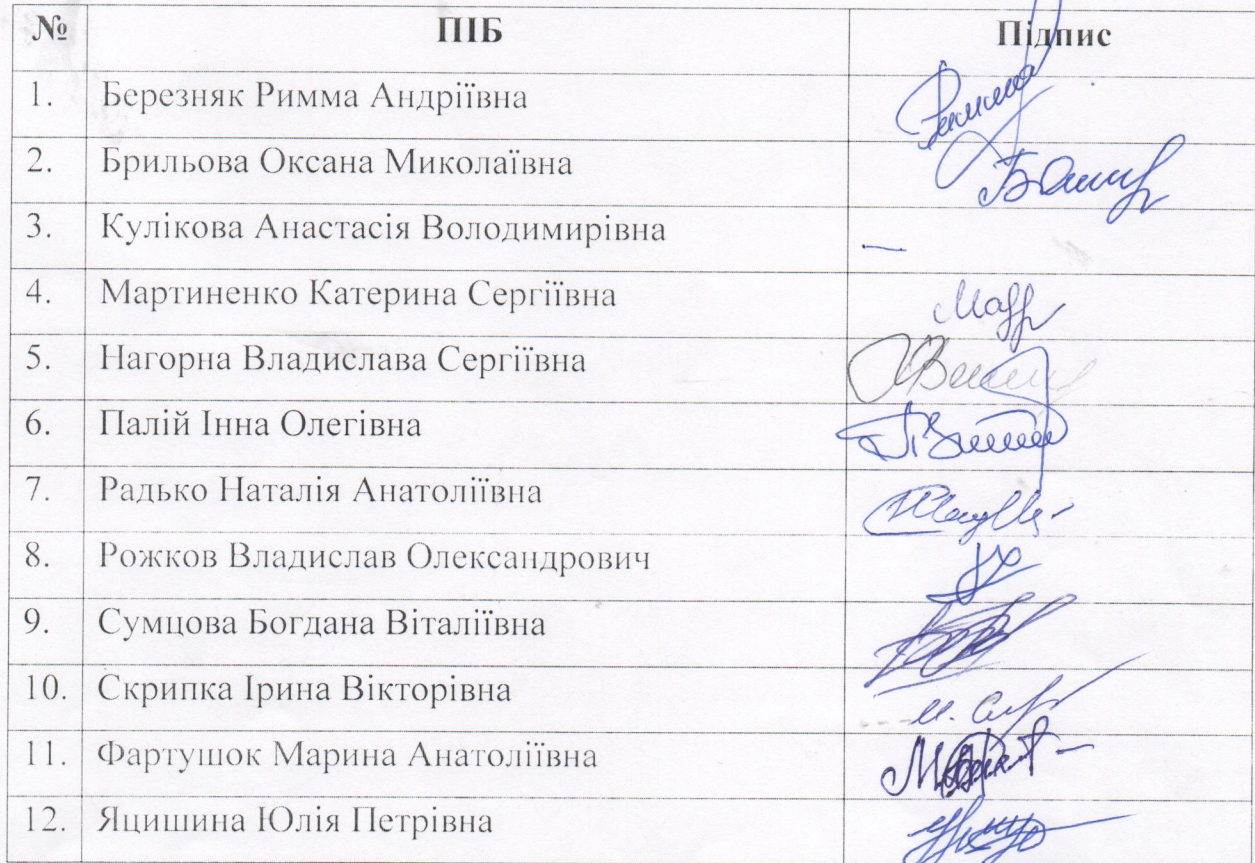 № ПІБ Підпис
1. Березняк Римма Андріївна
2. Брильова Оксана Миколаївна
3. Кулікова Анастасія Володимирівна —
4. Мартиненко Катерина Сергіївна
5. Нагорна Владислава Сергіївна
6. Палій Інна Олегівна
7. Радько Наталія Анатоліївна
8. Рожков Владислав Олександрович
9. Сумцова Богдана Віталіївна
10. Скрипка Ірина Вікторівна
11. Фартушок Марина Анатоліївна
12. Яцишина Юлія Петрівна